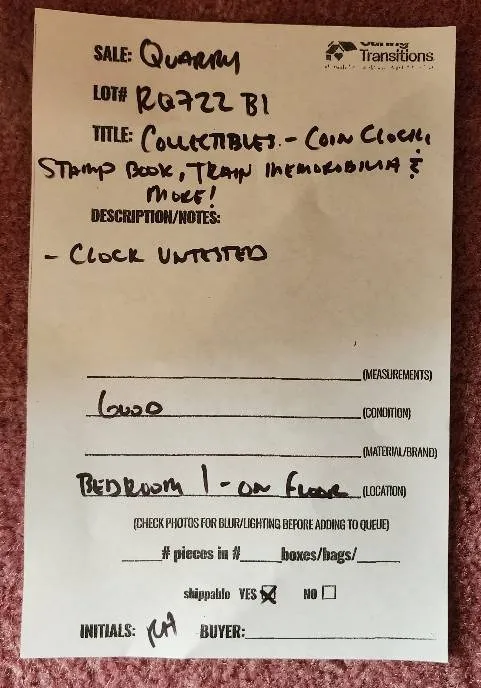 Caring
Transitions
SALE: QUARRY
LOT# RQ722 B1
TITLE: COLLECTIBLES - COIN CLOCK,
STAMP BOOK, TRAIN MEMORABILIA &
MORE!
DESCRIPTION/NOTES:
- CLOCK UNTESTED
(MEASUREMENTS)
GOOD (CONDITION)
(MATERIAL/BRAND)
BEDROOM 1 - ON FLOOR (LOCATION)
(CHECK PHOTOS FOR BLUR/LIGHTING BEFORE ADDING TO QUEUE)
# pieces in # boxes/bags/
shippable YES NO
INITIALS: BUYER: